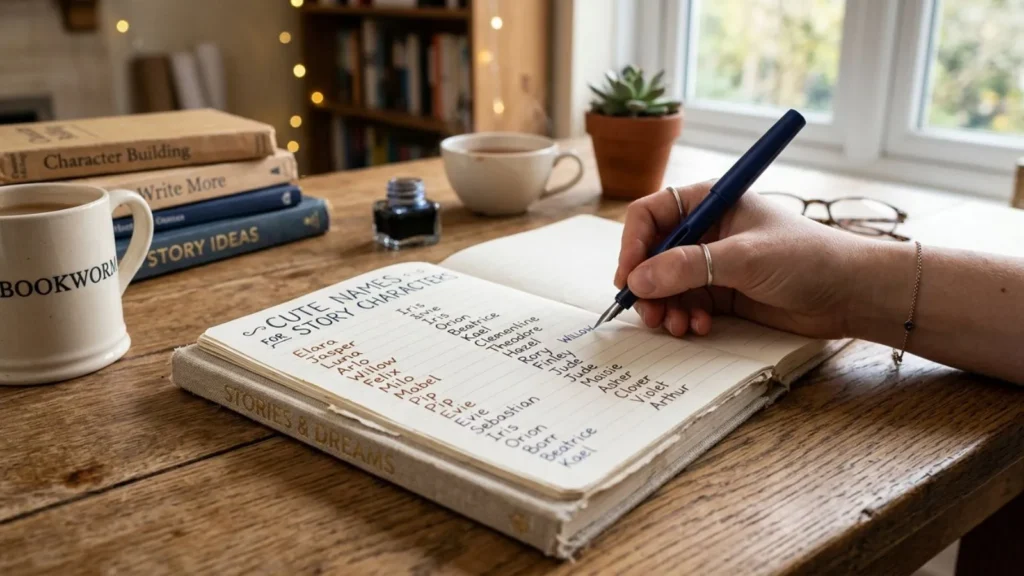 Character Building
Write More
STORY IDEAS
BOOKWORM
CUTE NAMES
FOR STORY CHARACTERS
Elara
Jasper
Luna
Arlo
Willow
Felix
Milo
Mabel
Pip
Evie
Iris
Orion
Beatrice
Kael
Clementine
Theodore
Hazel
Rory
Finley
Jude
Maisie
Asher
Clover
Violet
Arthur
Evie
Sebastian
Iris
Orion
Beatrice
Kael
Willow
STORIES & DREAMS